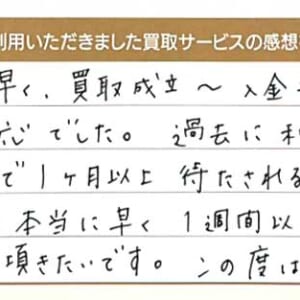 利用いただきました買取サービスの感想
早く、買取成立～入金
応でした。過去に利
で1ヶ月以上 待たされる
本当に早く 1週間以
頂きたいです。この度は